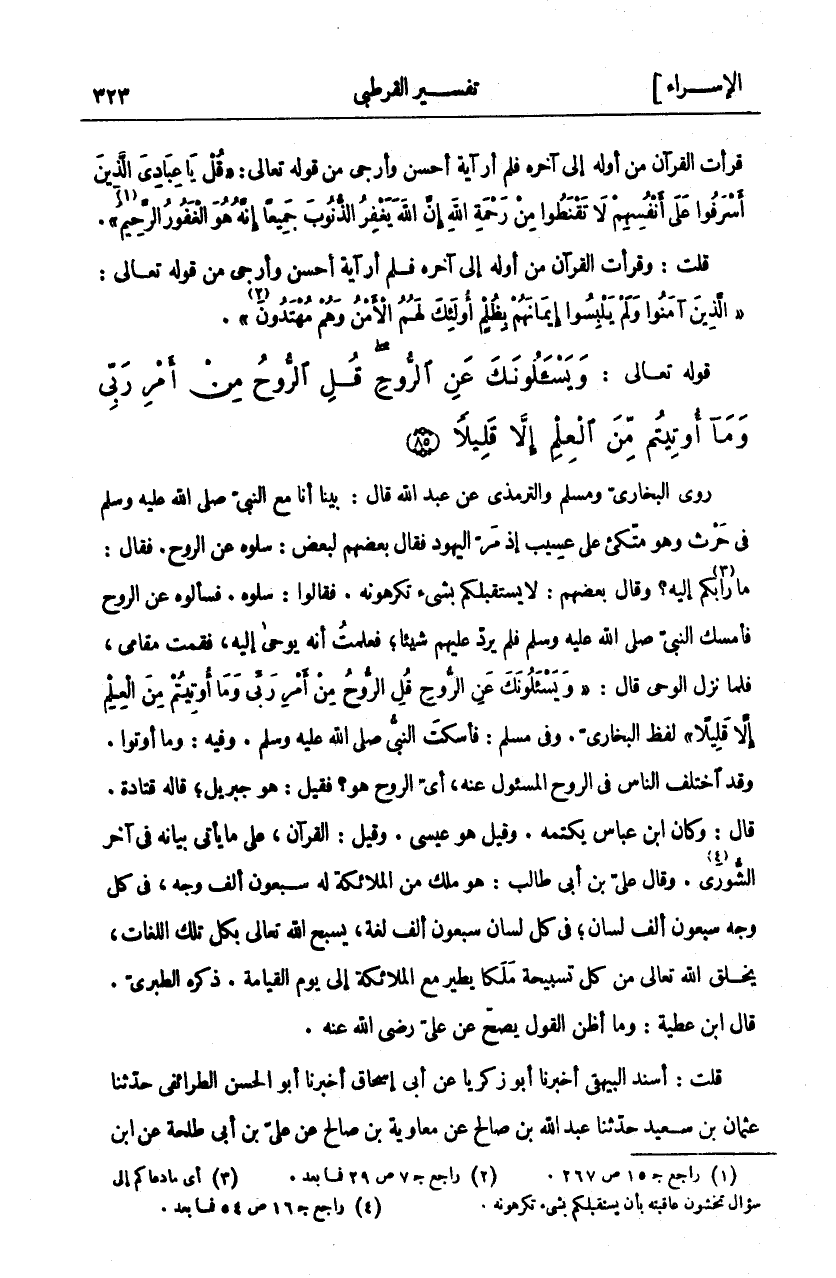 الإسراء ] تفسير القرطبى ٣٢٣
قرأت القرآن من أوله إلى آخره فلم أر آية أحسن وأرجى من قوله تعالى: «قُلْ يَا عِبَادِىَ الَّذِينَ
أَسْرَفُوا عَلَى أَنْفُسِهِمْ لَا تَقْنَطُوا مِنْ رَحْمَةِ اللهِ إِنَّ اللهَ يَغْفِرُ الذُّنُوبَ جَمِيعًا إِنَّهُ هُوَ الْغَفُورُ الرَّحِيمُ(١)» .
قلت : وقرأت القرآن من أوله إلى آخره فلم أر آية أحسن وأرجى من قوله تعالى :
« الَّذِينَ آمَنُوا وَلَمْ يَلْبِسُوا إِيمَانَهُمْ بِظُلْمٍ أُولَئِكَ لَهُمُ الْأَمْنُ وَهُمْ مُهْتَدُونَ(٢) » .
قوله تعالى : وَيَسْـَٔلُونَكَ عَنِ ٱلرُّوحِ ۖ قُلِ ٱلرُّوحُ مِنْ أَمْرِ رَبِّى
وَمَآ أُوتِيتُم مِّنَ ٱلْعِلْمِ إِلَّا قَلِيلًا ٨٥
روى البخارىّ ومسلم والترمذى عن عبد الله قال : بينا أنا مع النبىّ صلى الله عليه وسلم
فى حَرْث وهو متّكئ على عسيب إذ مَرّ اليهود فقال بعضهم لبعض : سلوه عن الروح. فقال :
ما رابكم(٣) إليه؟ وقال بعضهم : لا يستقبلكم بشىء تكرهونه . فقالوا : سلوه . فسألوه عن الروح
فأمسك النبىّ صلى الله عليه وسلم فلم يردّ عليهم شيئا؛ فعلمتُ أنه يوحىٰ إليه، فقمت مقامى ،
فلما نزل الوحى قال : « وَيَسْئَلُونَكَ عَنِ الرُّوحِ قُلِ الرُّوحُ مِنْ أَمْرِ رَبِّى وَمَا أُوتِيتُمْ مِنَ الْعِلْمِ
إِلَّا قَلِيلًا» لفظ البخارىّ . وفى مسلم : فأسكتَ النبىُّ صلى الله عليه وسلم . وفيه : وما أوتوا .
وقد ٱختلف الناس فى الروح المسئول عنه، أىّ الروح هو؟ فقيل : هو جبريل؛ قاله قتادة .
قال : وكان ابن عباس يكتمه . وقيل هو عيسى . وقيل : القرآن ، على ما يأتى بيانه فى آخر
الشُّورَى(٤) . وقال علىّ بن أبى طالب : هو ملك من الملائكة له سبعون ألف وجه ، فى كل
وجه سبعون ألف لسان؛ فى كل لسان سبعون ألف لغة، يسبع الله تعالى بكل تلك اللغات،
يخلق الله تعالى من كل تسبيحة مَلَكا يطير مع الملائكة إلى يوم القيامة . ذكره الطبرىّ .
قال ابن عطية : وما أظن القول يصحّ عن علىّ رضى الله عنه .
قلت : أسند البيهقى أخبرنا أبو زكريا عن أبى إسحاق أخبرنا أبو الحسن الطرائفى حدثنا
عثمان بن سعيد حدثنا عبد الله بن صالح عن معاوية بن صالح عن علىّ بن أبى طلحة عن ابن
(١) راجع جـ ١٥ ص ٢٦٧ . (٢) راجع جـ ٧ ص ٢٩ فما بعد . (٣) أى ما دعاكم إلى
سؤال تخشون عاقبته بأن يستقبلكم بشىء تكرهونه . (٤) راجع جـ ١٦ ص ٥٤ فما بعد .